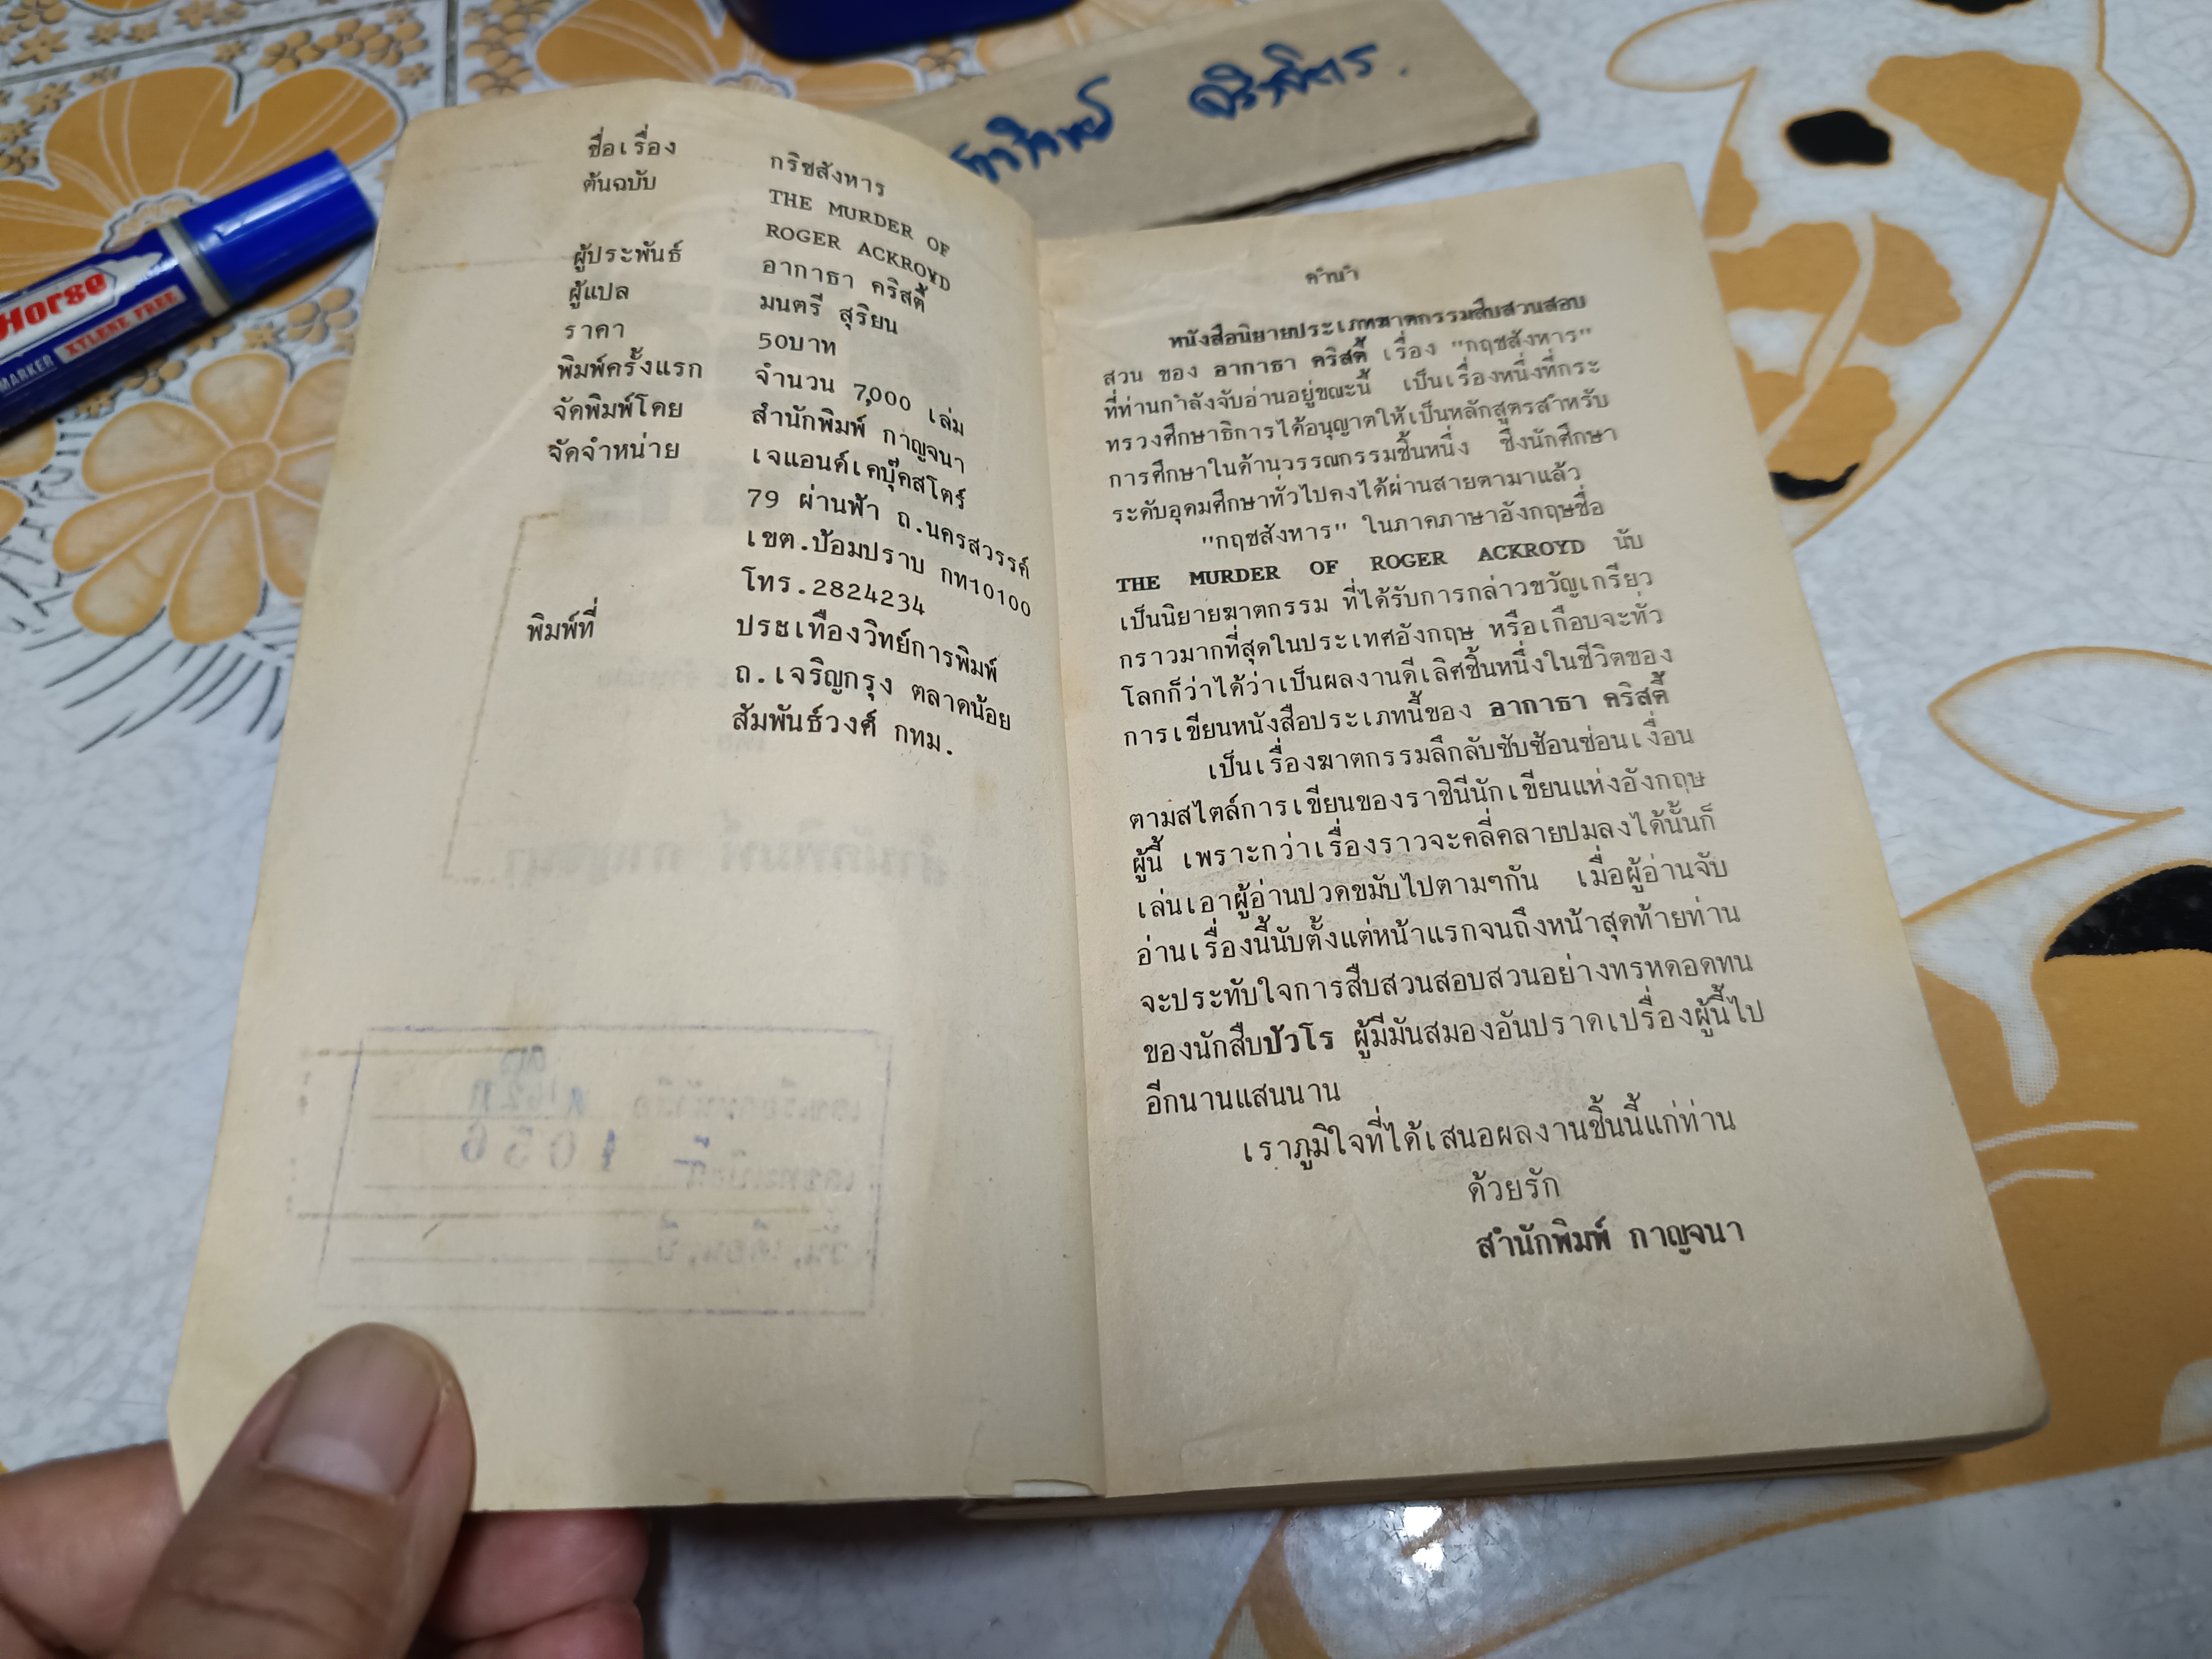 ชื่อเรื่อง กริชสังหาร
ต้นฉบับ THE MURDER OF
ROGER ACKROYD
ผู้ประพันธ์ อากาธา คริสตี้
ผู้แปล มนตรี สุริยน
ราคา 50บาท
พิมพ์ครั้งแรก จำนวน 7,000 เล่ม
จัดพิมพ์โดย สำนักพิมพ์ กาญจนา
จัดจำหน่าย เจแอนด์เคบุ๊คสโตร์
79 ผ่านฟ้า ถ.นครสวรรค์
เขต.ป้อมปราบ กท10100
โทร.2824234
พิมพ์ที่ ประเทืองวิทย์การพิมพ์
ถ.เจริญกรุง ตลาดน้อย
สัมพันธ์วงศ์ กทม.
คำนำ
หนังสือนิยายประเภทฆาตกรรมสืบสวนสอบ
สวน ของ อากาธา คริสตี้ เรื่อง "กฤชสังหาร"
ที่ท่านกำลังจับอ่านอยู่ขณะนี้ เป็นเรื่องหนึ่งที่กระ
ทรวงศึกษาธิการได้อนุญาตให้เป็นหลักสูตรสำหรับ
การศึกษาในด้านวรรณกรรมชิ้นหนึ่ง ซึ่งนักศึกษา
ระดับอุดมศึกษาทั่วไปคงได้ผ่านสายตามาแล้ว
"กฤชสังหาร" ในภาคภาษาอังกฤษชื่อ
THE MURDER OF ROGER ACKROYD นับ
เป็นนิยายฆาตกรรม ที่ได้รับการกล่าวขวัญเกรียว
กราวมากที่สุดในประเทศอังกฤษ หรือเกือบจะทั่ว
โลกก็ว่าได้ว่าเป็นผลงานดีเลิศชิ้นหนึ่งในชีวิตของ
การเขียนหนังสือประเภทนี้ของ อากาธา คริสตี้
เป็นเรื่องฆาตกรรมลึกลับซับซ้อนซ่อนเงื่อน
ตามสไตล์การเขียนของราชินีนักเขียนแห่งอังกฤษ
ผู้นี้ เพราะกว่าเรื่องราวจะคลี่คลายปมลงได้นั้นก็
เล่นเอาผู้อ่านปวดขมับไปตามๆกัน เมื่อผู้อ่านจับ
อ่านเรื่องนี้นับตั้งแต่หน้าแรกจนถึงหน้าสุดท้ายท่าน
จะประทับใจการสืบสวนสอบสวนอย่างทรหดอดทน
ของนักสืบปัวโร ผู้มีมันสมองอันปราดเปรื่องผู้นี้ไป
อีกนานแสนนาน
เราภูมิใจที่ได้เสนอผลงานชิ้นนี้แก่ท่าน
ด้วยรัก
สำนักพิมพ์ กาญจนา
Horse
MARKER XYLENE FREE